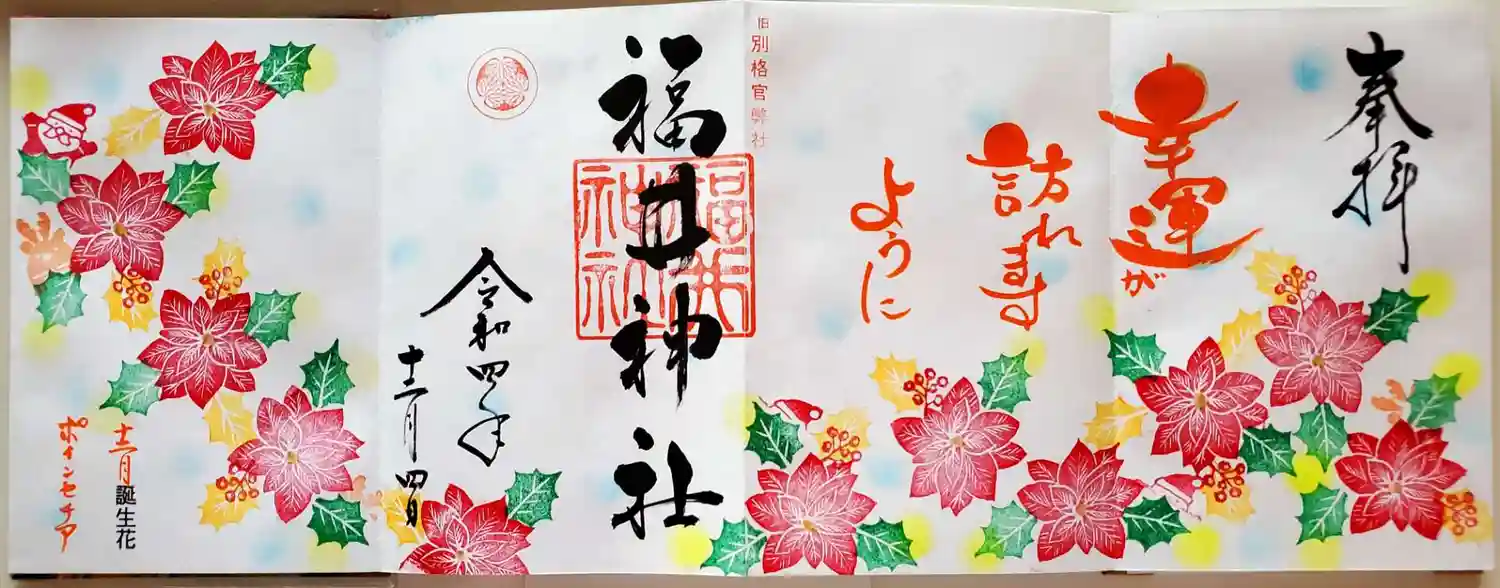 奉拝
幸運が
訪れます
ように
旧別格官弊社
福井神社
福井
神社
令和四年
十二月四日
十二月誕生花
ポインセチア